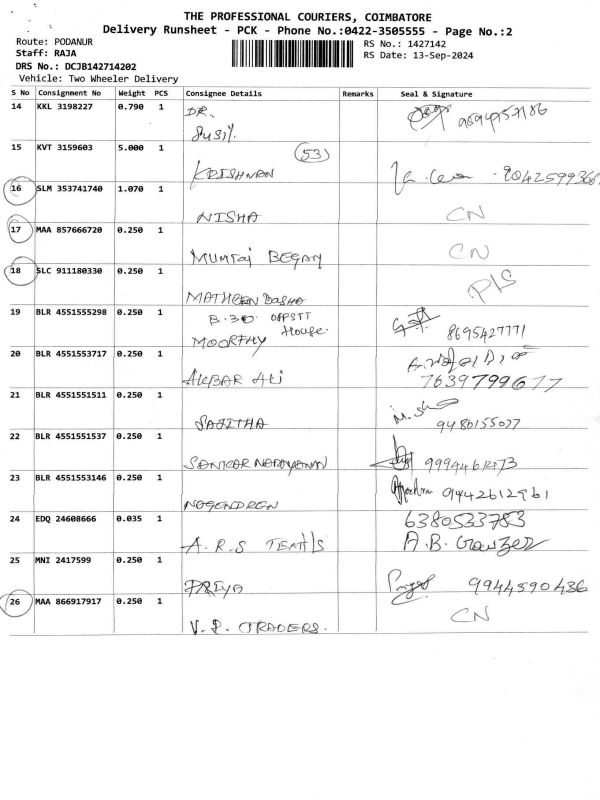 THE PROFESSIONAL COURIERS, COIMBATORE
Delivery Runsheet - PCK - Phone No.:0422-3505555 - Page No.:2
Route: PODANUR
RS No.: 1427142
Staff: RAJA
RS Date: 13-Sep-2024
DRS No.: DCJB142714202
Vehicle: Two Wheeler Delivery
S No Consignment No Weight PCS Consignee Details Remarks Seal & Signature
14 KKL 3198227 0.790 1 DR.
Susil.
15 KVT 3159603 5.000 1 53
KRISHNAN
16 SLM 353741740 1.070 1
NISHA CN
17 MAA 857666720 0.250 1
MUMTAJ BEGAM CN
18 SLC 911180330 0.250 1
MATHEEN BASHA
19 BLR 4551555298 0.250 1
House.
MOORTHY 8695427771
20 BLR 4551553717 0.250 1
AKBAR ALI 7639799677
21 BLR 4551551511 0.250 1
SAJITHA 9480155077
22 BLR 4551551537 0.250 1
SANKAR NARAYANAN
23 BLR 4551553146 0.250 1
NAGENDREN 9442612961
24 EDQ 24608666 0.035 1 6380533783
A.R.S
25 MNI 2417599 0.250 1
PRIYA 9944590436
26 MAA 866917917 0.250 1 CN
V.S. TRADERS.